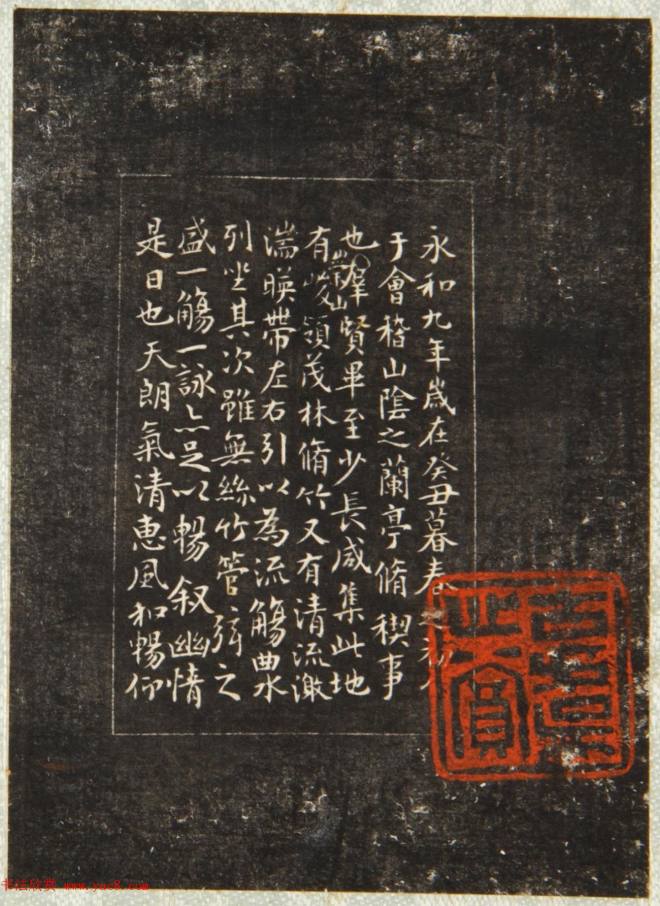 永和九年歲在癸丑暮春之初會
于會稽山陰之蘭亭脩禊事
也羣賢畢至少長咸集此地
有崇山峻領茂林脩竹又有清流激
湍暎帶左右引以為流觴曲水
列坐其次雖無絲竹管弦之
盛一觴一詠亦足以暢敘幽情
是日也天朗氣清惠風和暢仰
書法欣賞 www.yac8.com